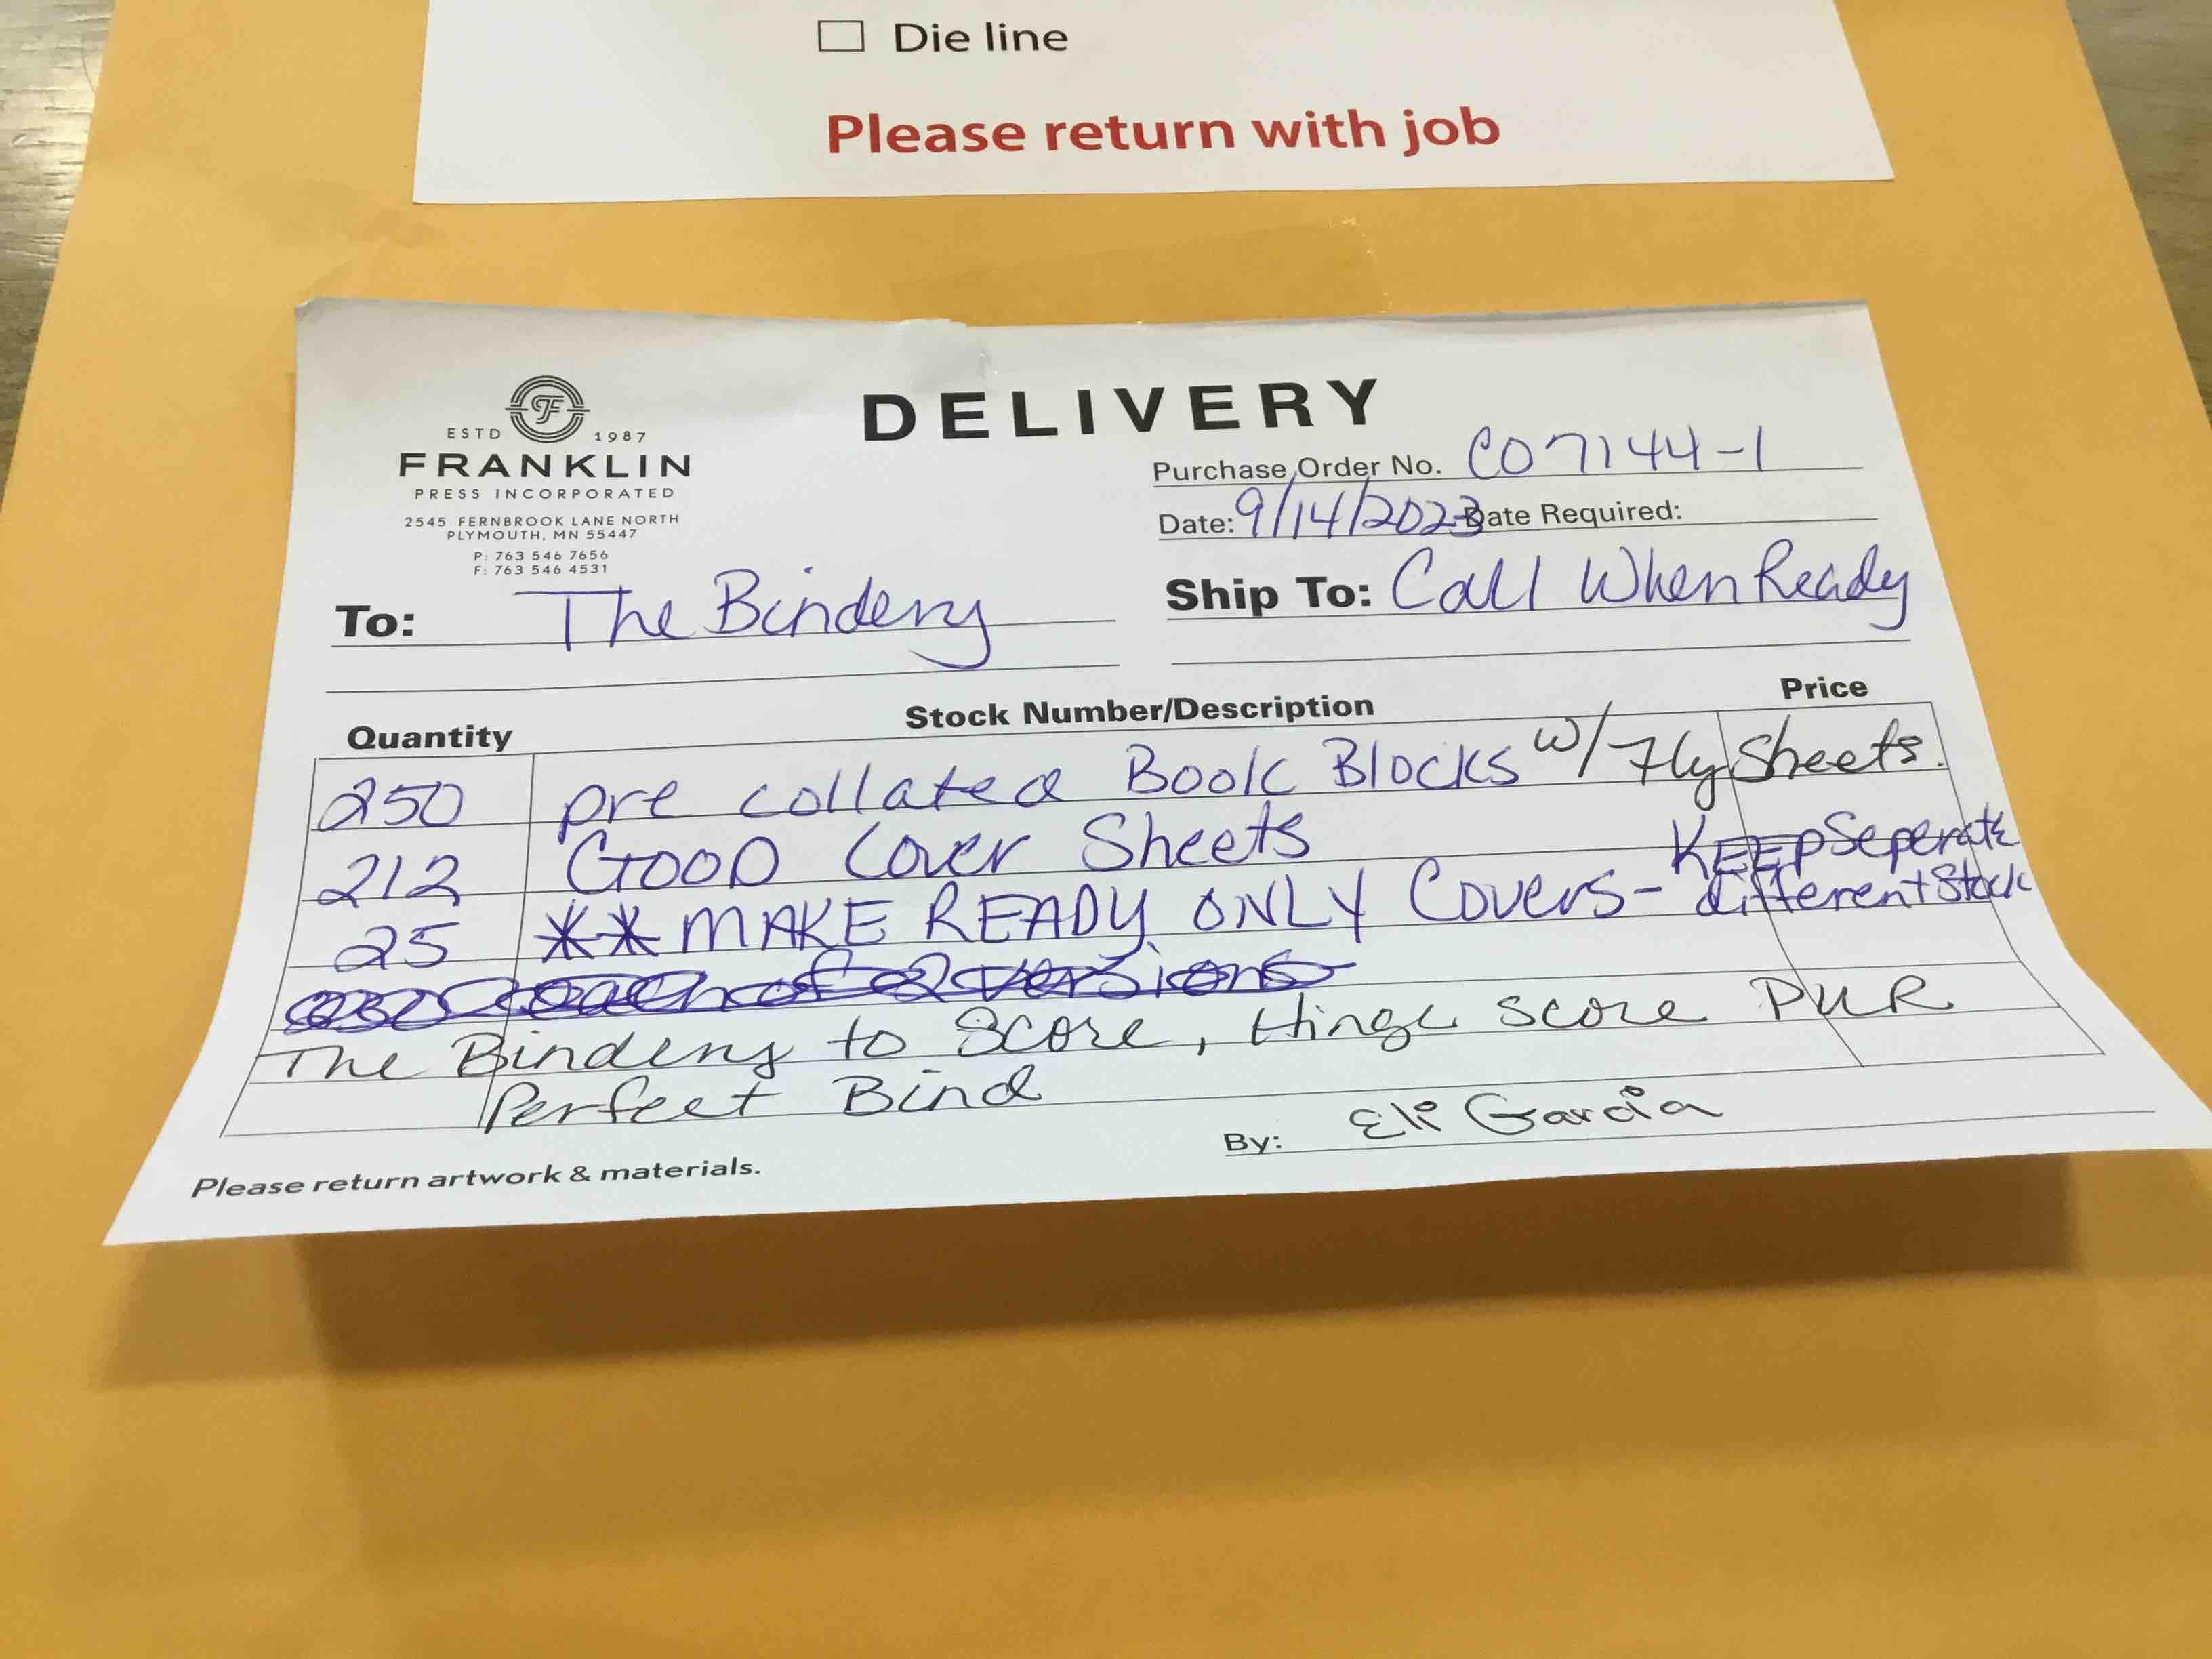 Die line
Please return with job
ESTD 1987
FRANKLIN
PRESS INCORPORATED
2545 FERNBROOK LANE NORTH
PLYMOUTH, MN 55447
P: 763 546 7656
F: 763 546 4531
DELIVERY
Purchase Order No. CO7144-1
Date: 9/14/2023 Date Required:
To: The Bindery
Ship To: Call When Ready
Quantity Stock Number/Description Price
250 pre collated Book Blocks w/ Fly Sheets.
212 GOOD Cover Sheets
25 ** MAKE READY ONLY Covers - KEEP Seperate
different Stock
each of 2 versions
The Bindery to Score, Hinge Score PUR
Perfect Bind
By: Eli Garcia
Please return artwork & materials.